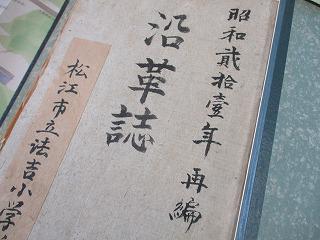 昭和貳拾壹年再編
沿革誌
松江市立法吉小学